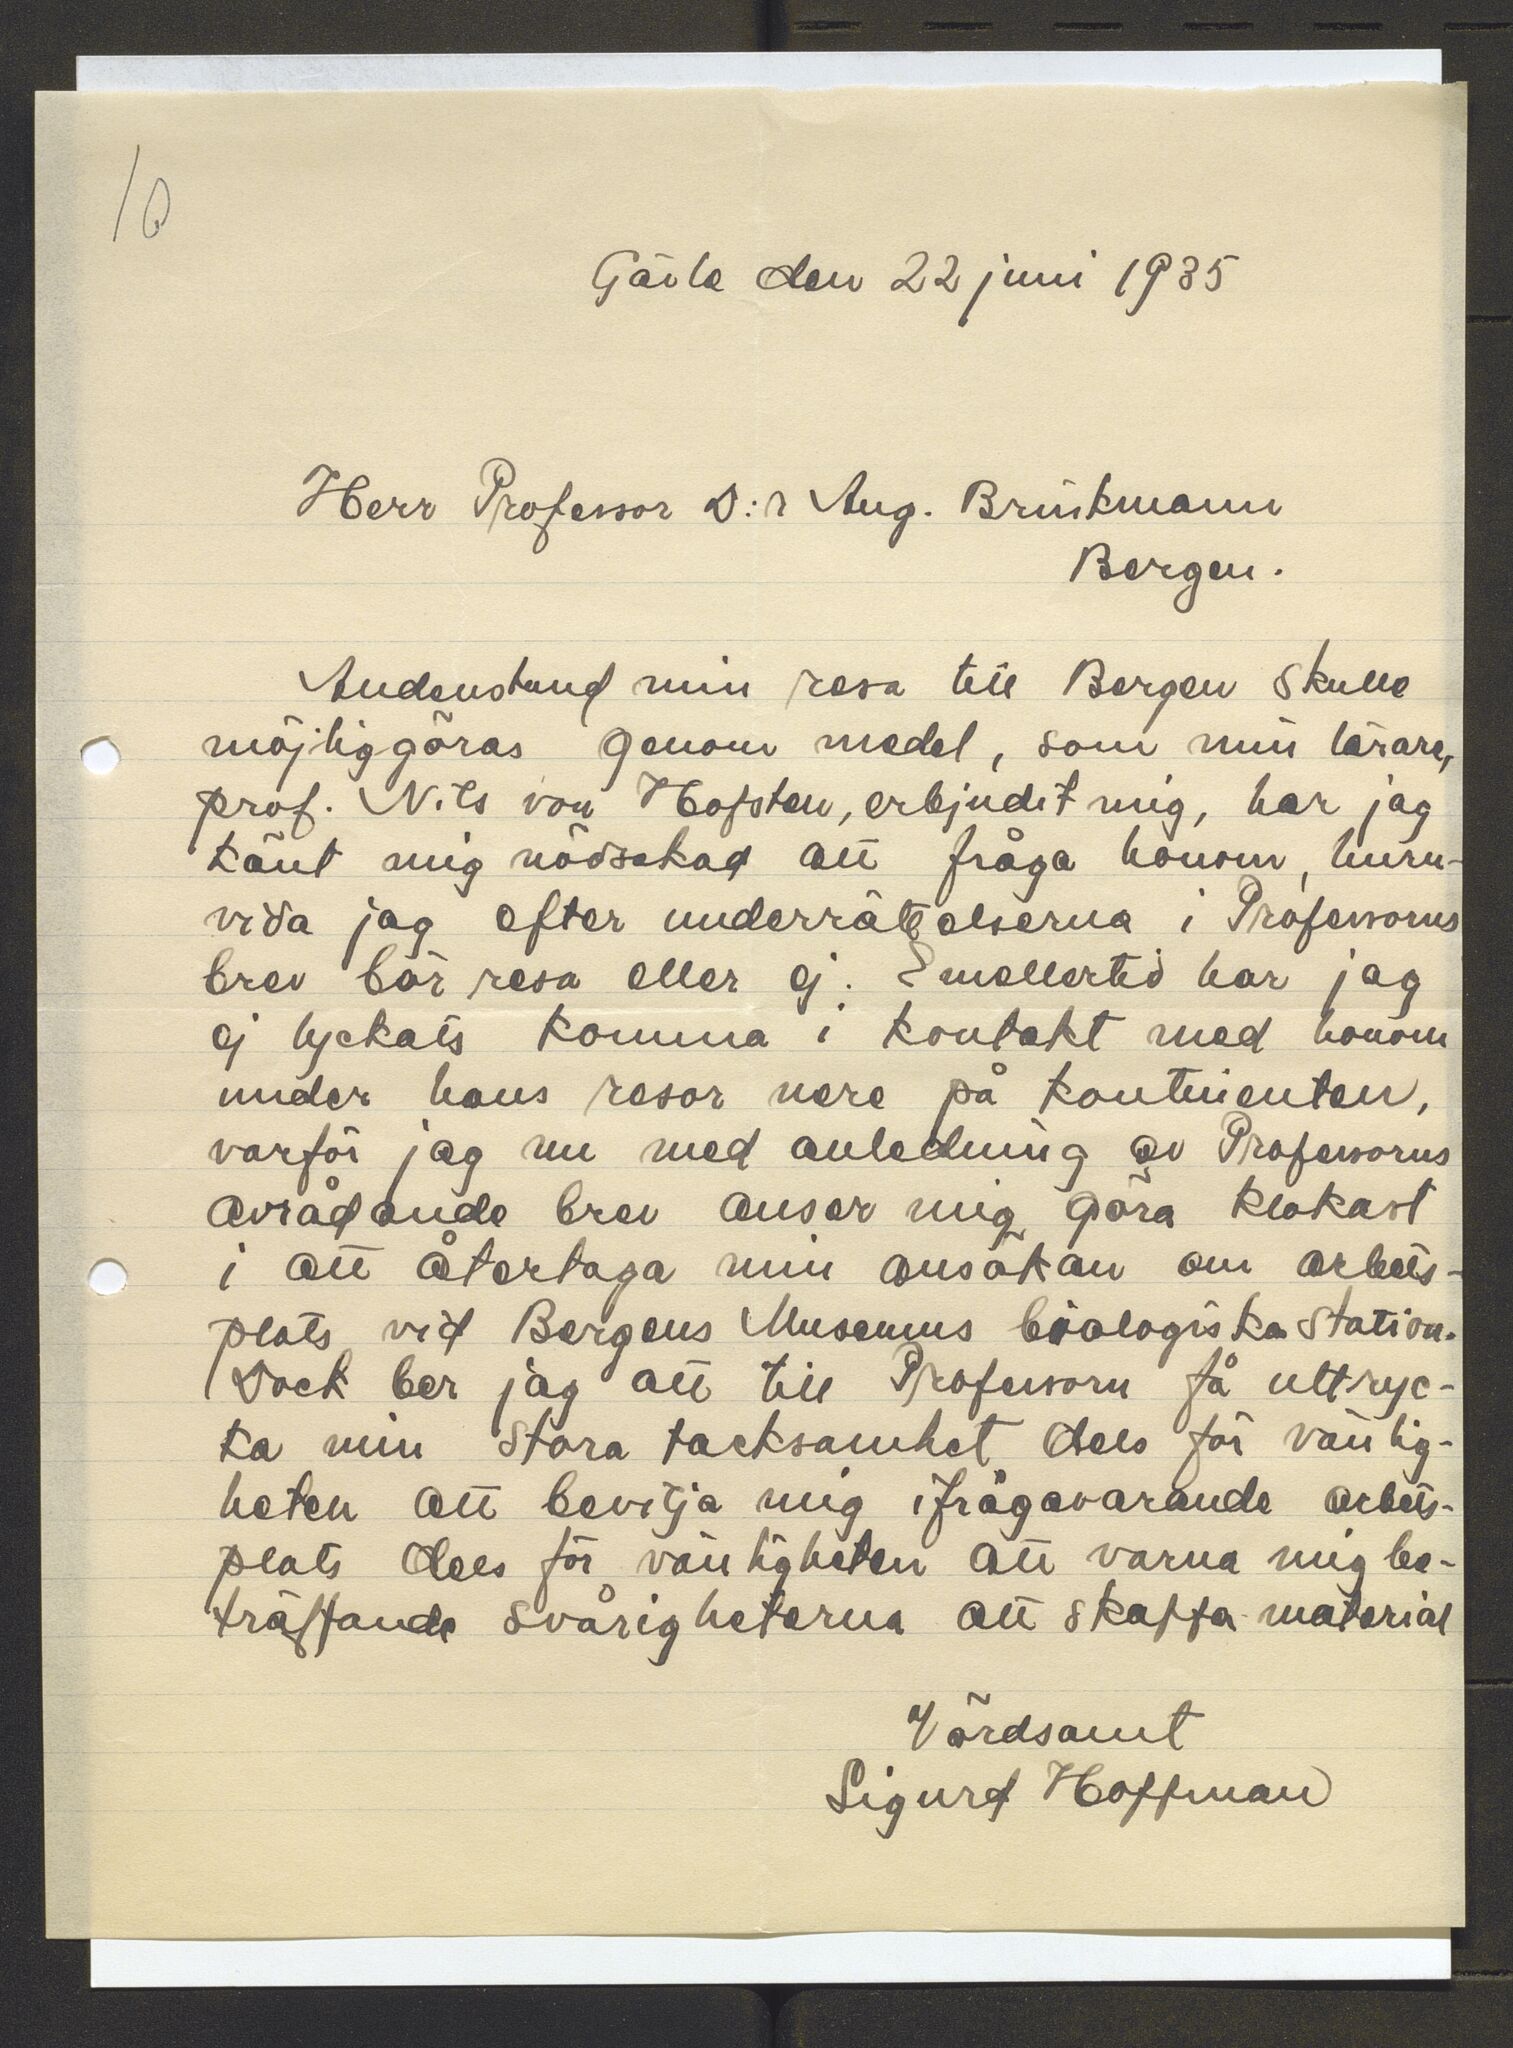 10
Gävle den 22 juni 1935
Herr Professor D:r Aug. Brinkmann
Bergen.
Andenstund min resa till Bergen skulle
möjliggöras genom medel, som min lärare,
prof. Nils von Hofsten, erbjudit mig, har jag
känt mig nödsakad att fråga honom, huru-
vida jag efter underrättelserna i Professorns
brev bör resa eller ej. Emellertid har jag
ej lyckats komma i kontakt med honom
under hans resor nere på kontinenten,
varför jag nu med anledning av Professorns
avrådande brev anser mig göra klokast
i att återtaga min ansökan om arbets-
plats vid Bergens Museums biologiska Station.
Dock ber jag att till Professorn få uttryc-
ka min stora tacksamhet dels för vänlig-
heten att bevilja mig ifrågavarande arbets-
plats dels för vänligheten att varna mig be-
träffande svårigheterna att skaffa material
Vördsamt
Sigurd Hoffman